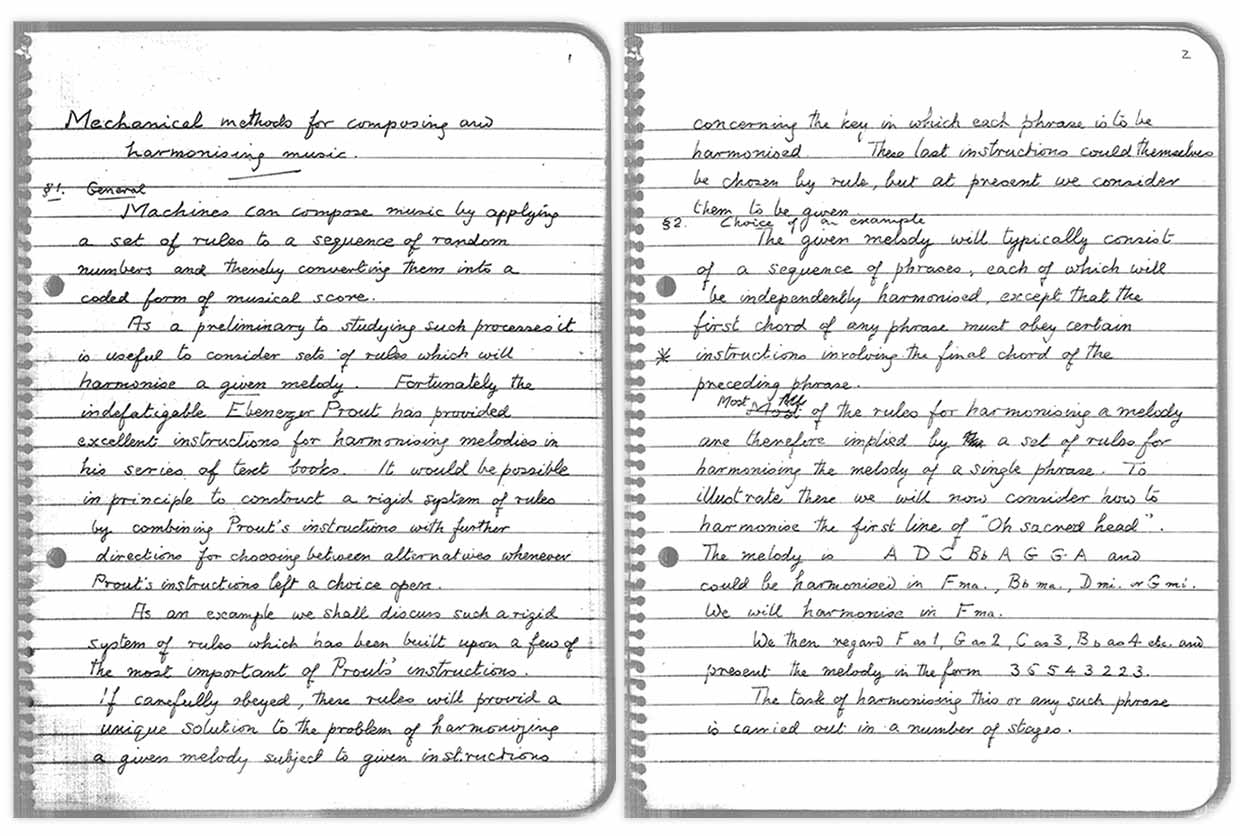 1
Mechanical methods for composing and
harmonising music.
§1. General
Machines can compose music by applying
a set of rules to a sequence of random
numbers and thereby converting them into a
coded form of musical score.
As a preliminary to studying such processes it
is useful to consider sets of rules which will
harmonise a given melody. Fortunately the
indefatigable Ebenezer Prout has provided
excellent instructions for harmonising melodies in
his series of text books. It would be possible
in principle to construct a rigid system of rules
by combining Prout's instructions with further
directions for choosing between alternatives whenever
Prout's instructions left a choice open.
As an example we shall discuss such a rigid
system of rules which has been built upon a few of
the most important of Prout's instructions.
If carefully obeyed, these rules will provid a
unique solution to the problem of harmonizing
a given melody subject to given instructions
2
concerning the key in which each phrase is to be
harmonised. These last instructions could themselves
be chosen by rule, but at present we consider
them to be given
§2. Choice of an example
The given melody will typically consist
of a sequence of phrases, each of which will
be independently harmonised, except that the
first chord of any phrase must obey certain
* instructions involving the final chord of the
preceding phrase.
Most
of the rules for harmonising a melody
are therefore implied by a set of rules for
harmonising the melody of a single phrase. To
illustrate these we will now consider how to
harmonise the first line of "Oh sacred head".
The melody is A D C Bb A G G A and
could be harmonised in F ma., Bb ma., D mi. or G mi.
We will harmonise in F ma.
We then regard F as 1, G as 2, C as 3, Bb as 4 etc. and
present the melody in the form 3 6 5 4 3 2 2 3.
The task of harmonising this or any such phrase
is carried out in a number of stages.